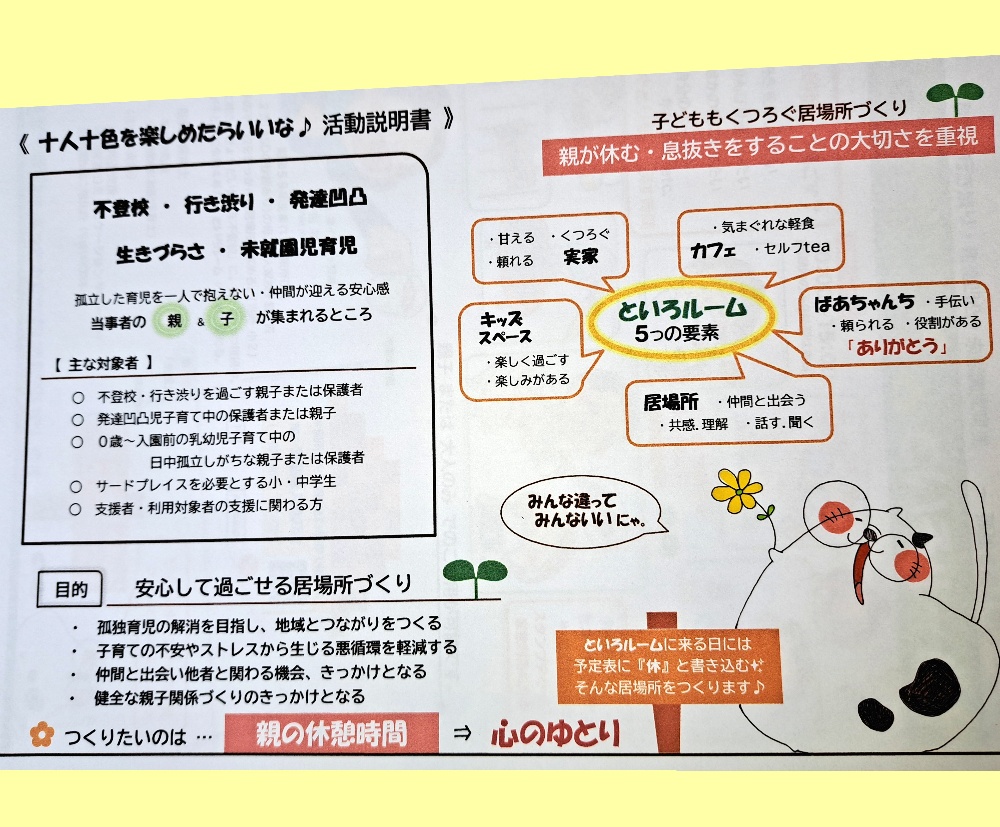 《 十人十色を楽しめたらいいな♪ 活動説明書 》
不登校 ・ 行き渋り ・ 発達凹凸
生きづらさ ・ 未就園児育児
孤立した育児を一人で抱えない・仲間が迎える安心感
当事者の 親 & 子 が集まれるところ
【 主な対象者 】
○ 不登校・行き渋りを過ごす親子または保護者
○ 発達凹凸児子育て中の保護者または親子
○ 0歳～入園前の乳幼児子育て中の
日中孤立しがちな親子または保護者
○ サードプレイスを必要とする小・中学生
○ 支援者・利用対象者の支援に関わる方
目的 安心して過ごせる居場所づくり
・ 孤独育児の解消を目指し、地域とつながりをつくる
・ 子育ての不安やストレスから生じる悪循環を軽減する
・ 仲間と出会い他者と関わる機会、きっかけとなる
・ 健全な親子関係づくりのきっかけとなる
つくりたいのは … 親の休憩時間 ⇒ 心のゆとり
子どももくつろぐ居場所づくり
親が休む・息抜きをすることの大切さを重視
・甘える ・くつろぐ
・頼れる 実家
・気まぐれな軽食
カフェ ・セルフtea
といろルーム
5つの要素
キッズ
スペース
・楽しく過ごす
・楽しみがある
ばあちゃんち ・手伝い
・頼られる ・役割がある
「ありがとう」
居場所 ・仲間と出会う
・共感.理解 ・話す.聞く
みんな違って
みんないい にゃ。
といろルームに来る日には
予定表に『休』と書き込む✨
そんな居場所をつくります♪